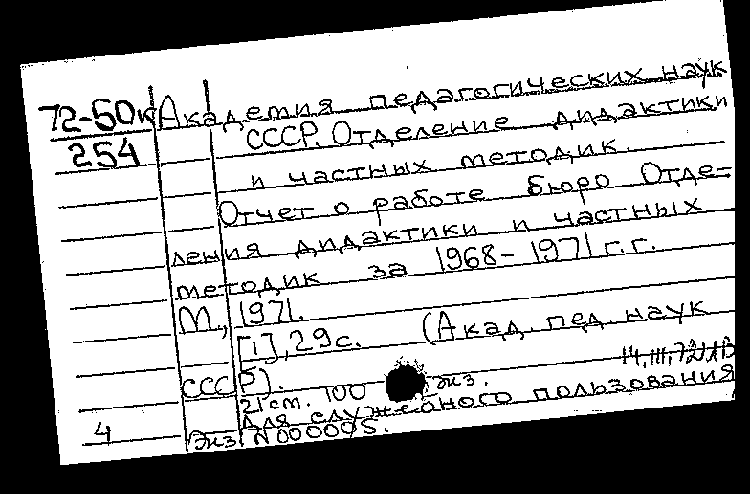 72-50к Академия педагогических наук
254 СССР. Отделение дидактики
и частных методик.
Отчет о работе бюро Отде-
ления дидактики и частных
методик за 1968-1971 г.г.
М., 1971.
[1], 29 с. (Акад. пед. наук
СССР).
21 см. 100 экз.
Для служебного пользования
4 Экз. N 000005.